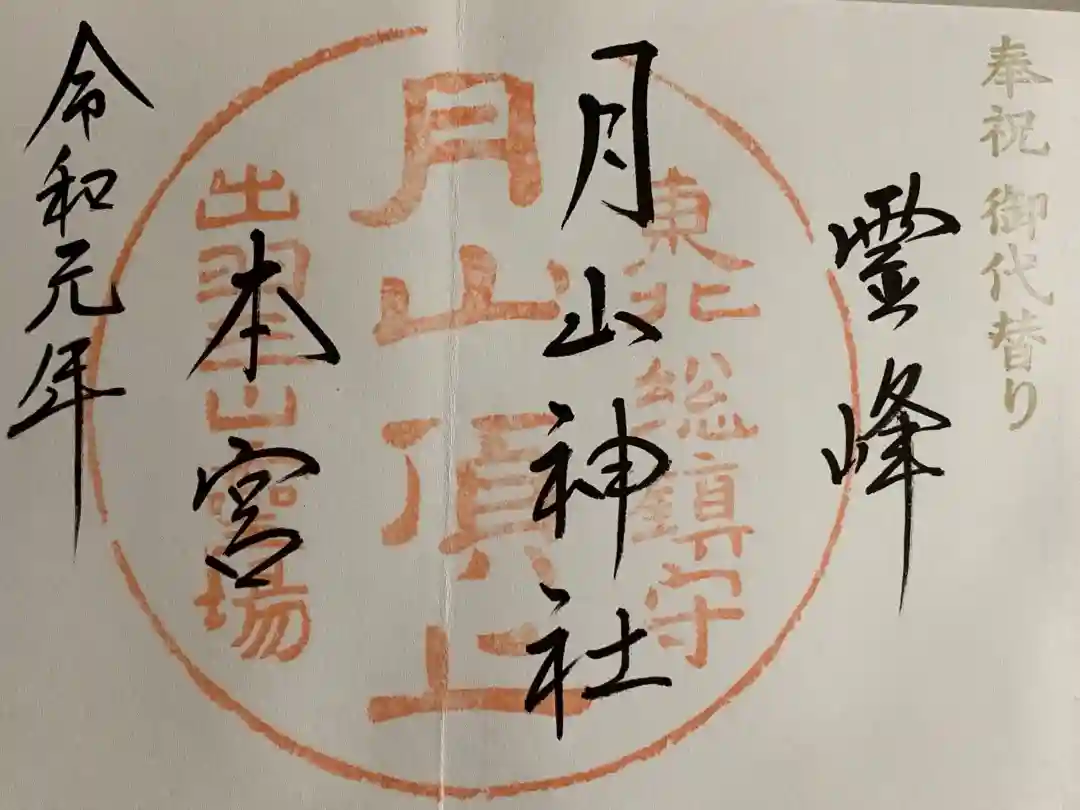 奉祝 御代替り
霊峰
月山神社
本宮
令和元年
東北総鎮守
月山頂上
出羽山霊場